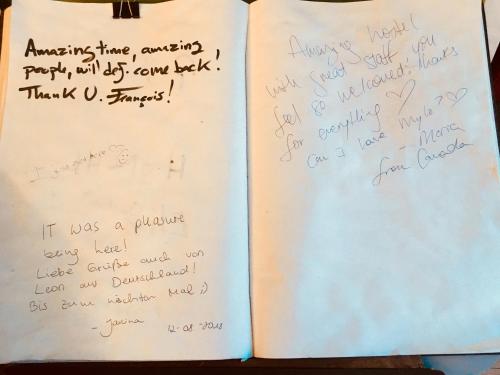 Amazing time, amazing
people, will def. come back!
Thank U. François!
IT was a pleasure
being here!
Liebe Grüße auch von
Leon aus Deutschland!
Bis zum nächsten Mal ;)
- Janina 12-08-2018
Amazing hostel
with great staff you
feel so welcomed! Thanks
for everything ♡
Can I have Mylo? ♡
- Maria
from Canada